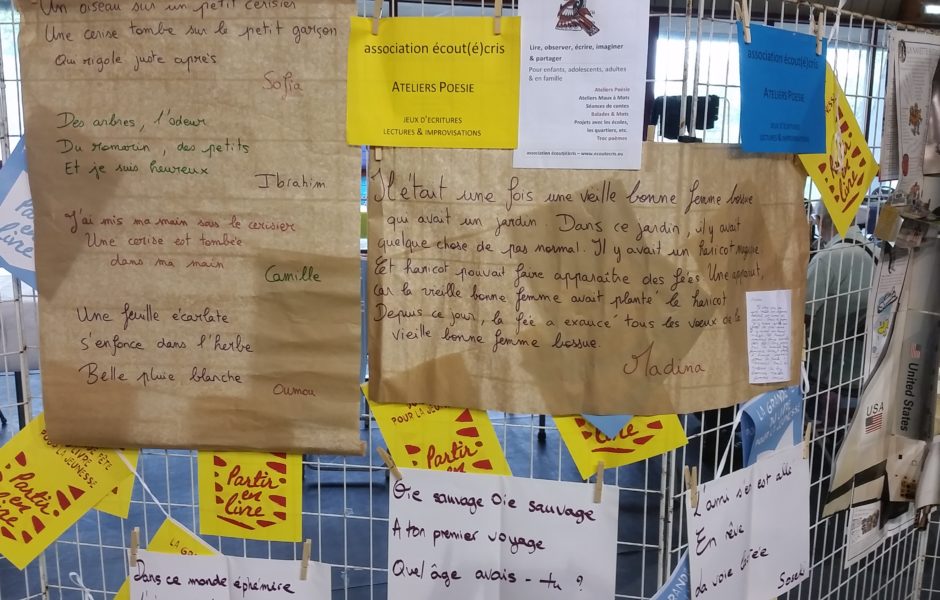 Un oiseau sur un petit cerisier
Une cerise tombe sur le petit garçon
Qui rigole juste après
Sofia
Des arbres, l'odeur
Du romarin, des petits
Et je suis heureux
Ibrahim
J'ai mis ma main sous le cerisier
Une cerise est tombée
dans ma main
Camille
Une feuille écarlate
S'enfonce dans l'herbe
Belle pluie blanche
Oumou
association écout(é)cris
ATELIERS POESIE
JEUX D'ECRITURES
LECTURES & IMPROVISATIONS
Lire, observer, écrire, imaginer
& partager
Pour enfants, adolescents, adultes
& en famille
Ateliers Poésie
Ateliers Maux à Mots
Séances de contes
Balades & Mots
Projets avec les écoles,
les quartiers, etc.
Troc poèmes
association écout(é)cris – www.ecoutecris.eu
association écout(é)cris
ATELIERS POESIE
JEUX D'ECRITURES
LECTURES & IMPROVISATIONS
Il était une fois une vieille bonne femme bossue
qui avait un jardin. Dans ce jardin, il y avait
quelque chose de pas normal. Il y avait un haricot magique.
Cet haricot pouvait faire apparaître des fées. Une apparut,
car la vieille bonne femme avait planté le haricot
Depuis ce jour, la fée a exaucé tous les voeux de la
vieille bonne femme bossue.
Madina
Partir
en
livre
LIVRE
POUR LA JEUNESSE
Partir
en
livre
Partir
en
livre
POUR LA JEUNESSE
Partir
en
livre
LA GRANDE
United States
USA
Oie sauvage Oie sauvage
A ton premier voyage
Quel âge avais-tu ?
Dans ce monde éphémère
L'ami s'en est allé
En rêve
La voie lactée